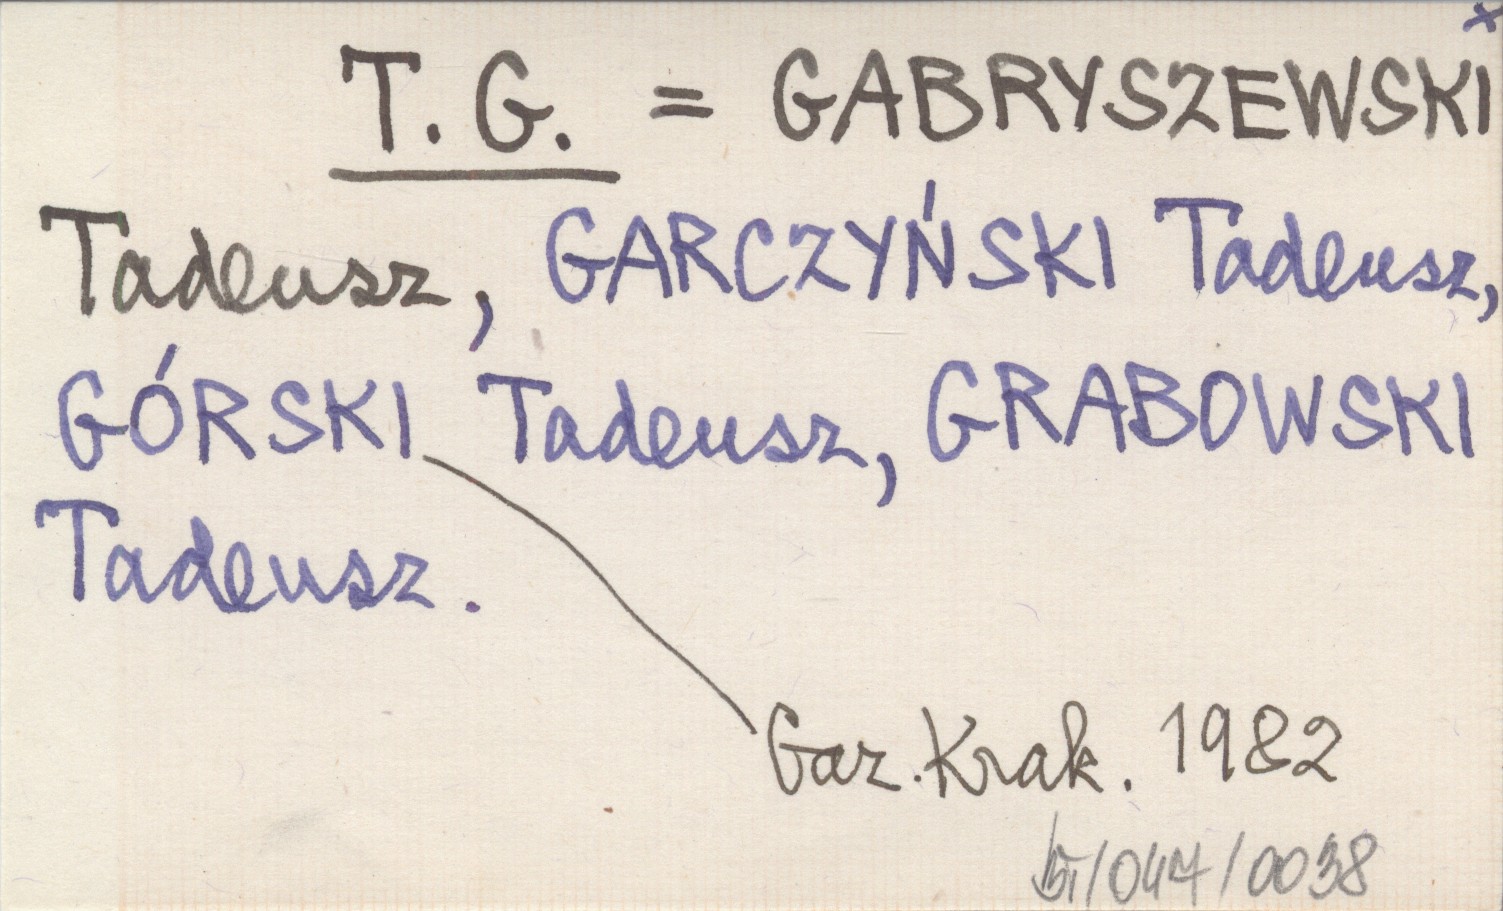 x
T. G. = GABRYSZEWSKI
Tadeusz, GARCZYŃSKI Tadeusz,
GÓRSKI Tadeusz, GRABOWSKI
Tadeusz.
Gaz. Krak. 1982
/047/0038